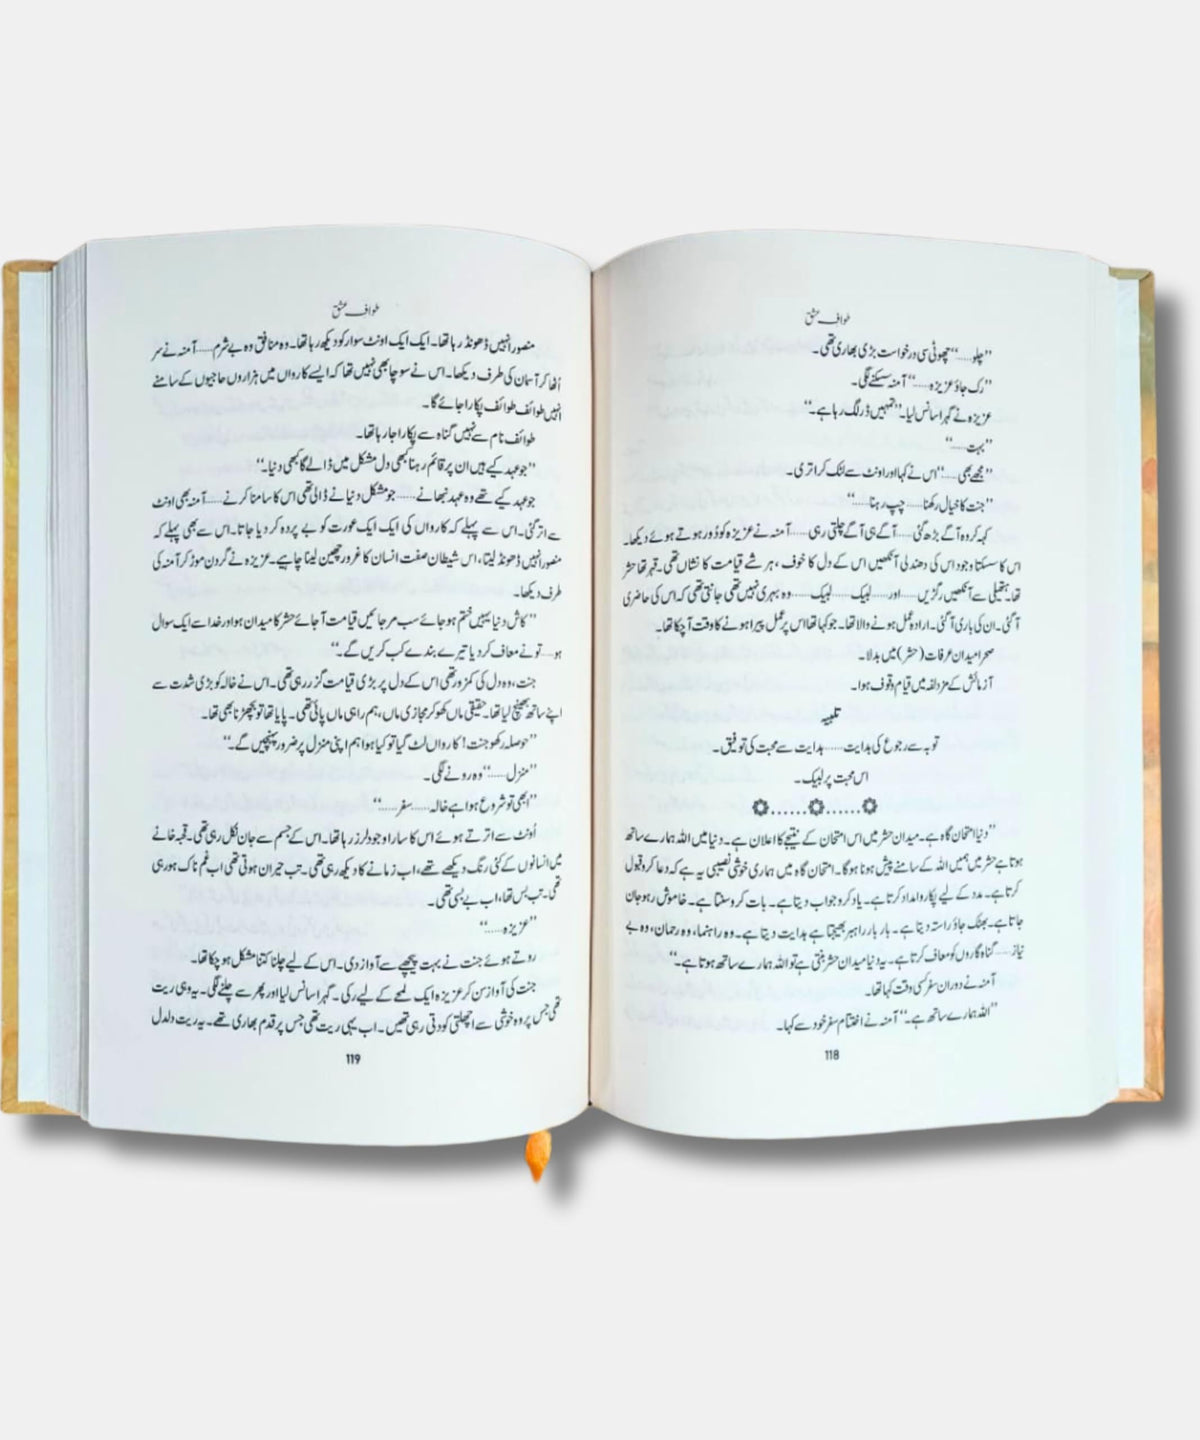 طواف عشق
”چلو......“ چھوٹی سی درخواست بڑی بھاری تھی۔
”رک جاؤ عزیزہ......“ آمنہ سسکنے لگی۔
عزیزہ نے گہرا سانس لیا۔ ”تمہیں ڈر لگ رہا ہے۔“
”بہت......“
”مجھے بھی......“ اس نے کہا اور اونٹ سے لٹک کر اتری۔
”جنت کا خیال رکھنا...... چپ رہنا......“
کہہ کر وہ آگے بڑھ گئی...... آگے ہی آگے چلتی رہی...... آمنہ نے عزیزہ کو دُور ہوتے ہوئے دیکھا۔
اس کا سسکتا وجود اس کی دھندلی آنکھیں اس کے دل کا خوف، ہر شے قیامت کا نشاں تھی۔ قہر تھا حشر
تھا۔ ہتھیلی سے آنکھیں رگڑیں...... اور...... لبیک...... لبیک...... وہ بہری نہیں تھی جانتی تھی کہ اس کی حاضری
آ گئی۔ ان کی باری آ گئی۔ ارادہ عمل ہونے والا تھا۔ جو کہا تھا اس پر عمل پیرا ہونے کا وقت آ چکا تھا۔
صحرا میدان عرفات (حشر) میں بدلا۔
آزمائش کے مزدلفہ میں قیام وقوف ہوا۔
تلبیہ
توبہ سے رجوع کی ہدایت...... ہدایت سے محبت کی توفیق۔
اس محبت پر لبیک۔
”دنیا امتحان گاہ ہے۔ میدان حشر میں اس امتحان کے نتیجے کا اعلان ہے۔ دنیا میں اللہ ہمارے ساتھ
ہوتا ہے حشر میں ہمیں اللہ کے سامنے پیش ہونا ہوگا۔ امتحان گاہ میں ہماری خوش نصیبی یہ ہے کہ دعا کرو قبول
کرتا ہے۔ مدد کے لیے پکارو امداد کرتا ہے۔ یاد کرو جواب دیتا ہے۔ بات کرو سنتا ہے۔ خاموش رہو جان
جاتا ہے۔ بھٹک جاؤ راستہ دیتا ہے۔ بار بار راہبر بھیجتا ہے ہدایت دیتا ہے۔ وہ راہنما، وہ رحمان، وہ بے
نیاز...... گناہ گاروں کو معاف کرتا ہے۔ یہ دنیا میدان حشر بنتی ہے تو اللہ ہمارے ساتھ ہوتا ہے۔“
آمنہ نے دوران سفر کسی وقت کہا تھا۔
”اللہ ہمارے ساتھ ہے۔“ آمنہ نے اختتام سفر خود سے کہا۔
118
طواف عشق
منصور انہیں ڈھونڈ رہا تھا۔ ایک ایک اونٹ سوار کو دیکھ رہا تھا۔ وہ منافق وہ بے شرم...... آمنہ نے سر
اُٹھا کر آسمان کی طرف دیکھا۔ اس نے سوچا بھی نہیں تھا کہ ایسے کارواں میں ہزاروں حاجیوں کے سامنے
انہیں طوائف طوائف پکارا جائے گا۔
طوائف نام سے نہیں گناہ سے پکارا جا رہا تھا۔
”جو عہد کیے ہیں ان پر قائم رہنا کبھی دل مشکل میں ڈالے گا کبھی دنیا۔“
جو عہد کیے تھے وہ عہد نبھانے...... جو مشکل دنیا نے ڈالی تھی اس کا سامنا کرنے...... آمنہ بھی اونٹ
سے اتر گئی۔ اس سے پہلے کہ کارواں کی ایک ایک عورت کو بے پردہ کر دیا جاتا۔ اس سے بھی پہلے کہ
منصور انہیں ڈھونڈ لیتا، اس شیطان صفت انسان کا غرور چھین لینا چاہیے۔ عزیزہ نے گردن موڑ کر آمنہ کی
طرف دیکھا۔
”کاش دنیا یہیں ختم ہو جائے سب مر جائیں قیامت آ جائے حشر کا میدان ہو اور خدا سے ایک سوال
ہو...... تو نے معاف کر دیا تیرے بندے کب کریں گے۔“
جنت، وہ دل کی کمزور تھی اس کے دل پر بڑی قیامت گزر رہی تھی۔ اس نے خالہ کو بڑی شدت سے
اپنے ساتھ بھینچ لیا تھا۔ حقیقی ماں کھو کر مجازی ماں، ہم راہی ماں پائی تھی۔ پایا تھا تو بچھڑنا بھی تھا۔
”حوصلہ رکھو جنت! کارواں لٹ گیا تو کیا ہوا ہم اپنی منزل پر ضرور پہنچیں گے۔“
”منزل......“ وہ رونے لگی۔
”ابھی تو شروع ہوا ہے خالہ...... سفر......“
اُونٹ سے اترتے ہوئے اس کا سارا وجود لرز رہا تھا۔ اس کے جسم سے جان نکل رہی تھی۔ قحبہ خانے
میں انسانوں کے کئی رنگ دیکھے تھے، اب زمانے کا دیکھ رہی تھی۔ تب حیران ہوتی تھی اب غم ناک ہو رہی
تھی۔ تب بس تھا، اب بے بسی تھی۔
”عزیزہ......“
روتے ہوئے جنت نے بہت پیچھے سے آواز دی۔ اس کے لیے چلنا کتنا مشکل ہو چکا تھا۔
جنت کی آواز سن کر عزیزہ ایک لمحے کے لیے رکی۔ گہرا سانس لیا اور پھر سے چلنے لگی۔ یہ وہی ریت
تھی جس پر وہ خوشی سے اچھلتی کودتی رہی تھیں۔ اب یہی ریت تھی جس پر قدم بھاری تھے۔ یہ ریت دلدل
119